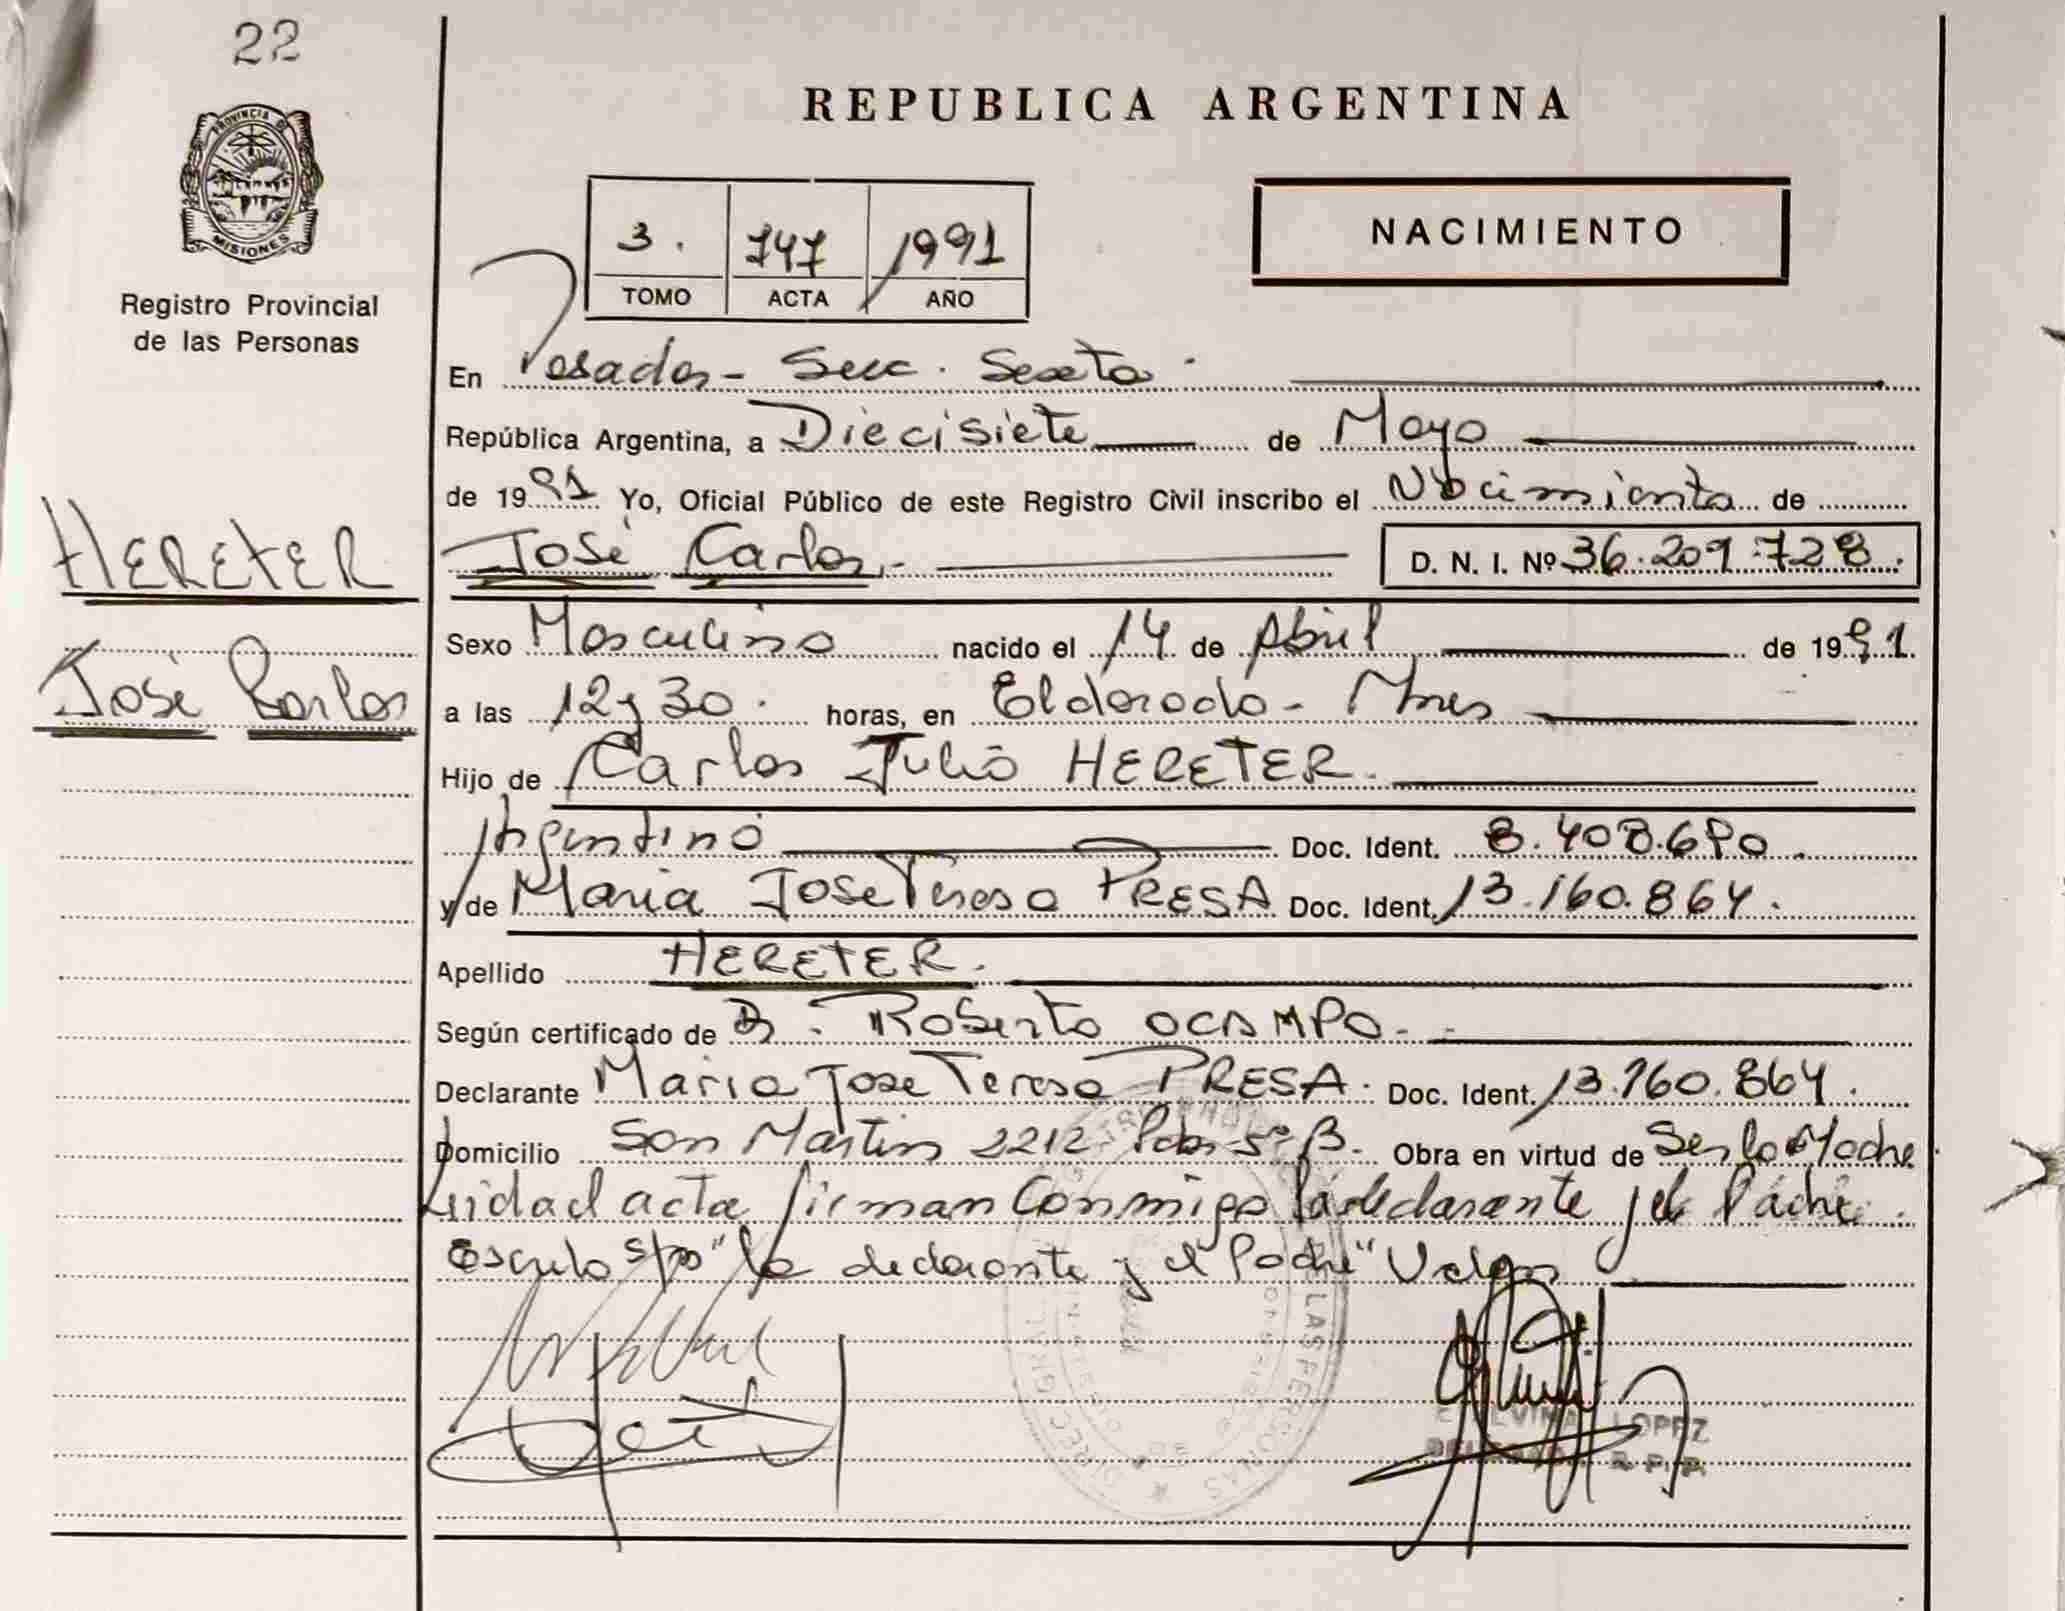 22
PROVINCIA DE
MISIONES
Registro Provincial
de las Personas
HERETER
José Carlos
REPUBLICA ARGENTINA
NACIMIENTO
3. 747 1991
TOMO ACTA AÑO
En Posadas - Secc. Sexta
República Argentina, a Diecisiete de Mayo
de 1991 Yo, Oficial Público de este Registro Civil inscribo el Nacimiento de
José Carlos.- D. N. I. Nº 36.209.728.
Sexo Masculino nacido el 14 de Abril de 1991.
a las 12 y 30. horas, en Eldorado - Mnes
Hijo de Carlos Julio HERETER.
Argentino Doc. Ident. 8.408.690.
y de Maria Jose Teresa PRESA Doc. Ident. 13.160.864.
Apellido HERETER.
Según certificado de Dr. Roberto OCAMPO.
Declarante Maria Jose Teresa PRESA. Doc. Ident. 13.160.864.
Domicilio San Martin 2212 Pdas 5º B. Obra en virtud de Ser la Madre
Leida el acta firman Conmigo la declarante y el Padre.
s/rpo "la declarante y el Padre" Valen
DIRECCION GRAL. LAS PERSONAS
LOPEZ
R. P. P.